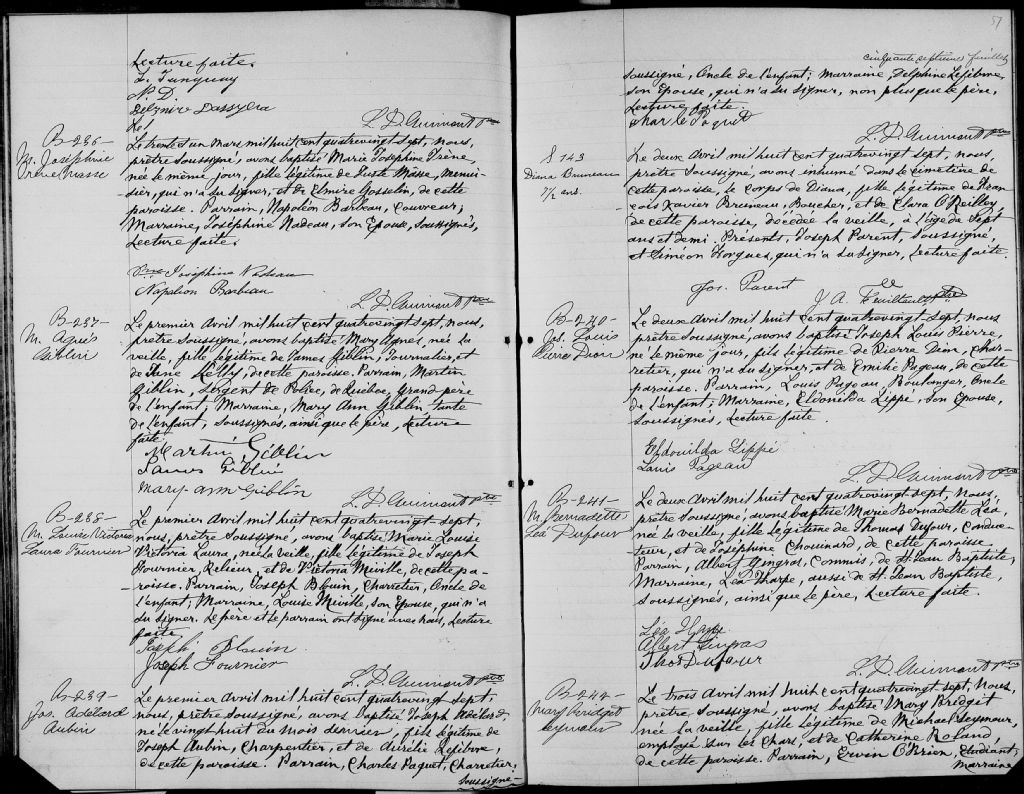 Lecture faite.
L. Tanguay
N. D.
Delznire Dassylva
L. D. Guimont Ptre
B-236-
M. Joséphine
Irène Masse
Le trente et un Mars mil huit cent quatrevingt sept, nous,
prêtre soussigné, avons baptisé Marie Joséphine Irène,
née le même jour, fille légitime de Juste Masse, menui-
sier, qui n'a su signer, et de Elmire Gosselin, de cette
paroisse. Parrain, Napoléon Barbeau, Couvreur;
Marraine, Joséphine Nadeau, son Epouse, soussignés,
Lecture faite.
Joséphine Nadeau
Napoléon Barbeau
L. D. Guimont Ptre
B-237-
M. Agnès
Giblin
Le premier Avril mil huit cent quatrevingt sept, nous,
prêtre soussigné, avons baptisé Mary Agnes, née la
veille, fille légitime de James Giblin, Journalier, et
de Jane Kelly, de cette paroisse. Parrain, Martin
Giblin, Sergent de Police, de Québec, Grand-père
de l'enfant; Marraine, Mary Ann Giblin tante
de l'enfant, soussignés, ainsi que le père, Lecture
faite.
Martin Giblin
James Giblin
Mary-ann Giblin
L. D. Guimont Ptre
B-238-
M. Louise Victoria
Laura Fournier
Le premier Avril mil huit cent quatrevingt-sept,
nous, prêtre soussigné, avons baptisé Marie Louise
Victoria Laura, née la veille, fille légitime de Joseph
Fournier, Relieur, et de Victoria Miville, de cette pa-
roisse. Parrain, Joseph Blouin, Charretier, Oncle de
l'enfant; Marraine, Louise Miville, son Epouse, qui n'a
su signer. Le père et le parrain ont signé avec nous, Lecture
faite,
Joseph Blouin
Joseph Fournier
L. D. Guimont Ptre
B-239-
Jos. Adélard
Aubin
Le premier Avril mil huit cent quatrevingt sept,
nous, prêtre soussigné, avons baptisé Joseph Adélard,
né le vingt huit du mois dernier, fils légitime de
Joseph Aubin, Charpentier, et de Aurélie Lefebvre,
de cette paroisse. Parrain, Charles Paquet, Charretier,
soussigné-
57
cinquante septième feuillet
soussigné, Oncle de l'enfant; Marraine, Delphine Lefebvre,
son Epouse, qui n'a su signer, non plus que le père,
Lecture faite.
Charle Paquet
L. D. Guimont Ptre
S 143
Diana Bruneau
7/2 ans.
Le deux Avril mil huit cent quatrevingt sept, nous,
prêtre soussigné, avons inhumé dans le cimetière de
cette paroisse, le corps de Diana, fille légitime de Fran-
çois Xavier Bruneau, Boucher, et de Clara O'Reilley
de cette paroisse, décédée la veille, à l'âge de Sept
ans et demi. Présents, Joseph Parent, soussigné,
et Siméon Horgues, qui n'a su signer, Lecture faite.
Jos. Parent
J. A. Feuiltault Ptre
B-240-
Jos. Louis
Pierre Dion
Le deux Avril mil huit cent quatrevingt sept, nous,
prêtre soussigné, avons baptisé Joseph Louis Pierre,
né le même jour, fils légitime de Pierre Dion, Char-
retier, qui n'a su signer, et de Emilie Pageau, de cette
paroisse. Parrain, Louis Pageau, Boulanger, Oncle
de l'enfant; Marraine, Eldonilda Lippé, son Epouse,
soussignés, Lecture faite.
Eldouilda Lippé
Louis Pageau
L. D. Guimont Ptre
B-241-
M. Bernadette
Léa Dufour
Le deux Avril mil huit cent quatrevingt sept, Nous,
prêtre soussigné, avons baptisé Marie Bernadette Léa,
née la veille, fille légitime de Thomas Dufour, Conduc-
teur, et de Joséphine Chouinard, de cette paroisse.
Parrain, Albert Gingras, Commis, de St. Jean Baptiste,
Marraine, Léa Tharpe, aussi de St. Jean Baptiste,
soussignés, ainsi que le père, Lecture faite.
Albert Gingras
Thos Dufour
L. D. Guimont Ptre
B-242-
Mary Bridget
Seymour
Le trois Avril mil huit cent quatrevingt sept, Nous,
prêtre, soussigné, avons baptisé Mary Bridget
née la veille, fille légitime de Michael Seymour,
employé sur les Chars, et de Catherine Roland,
de cette paroisse. Parrain, Erwin O'Brien, Etudiant,
Marraine